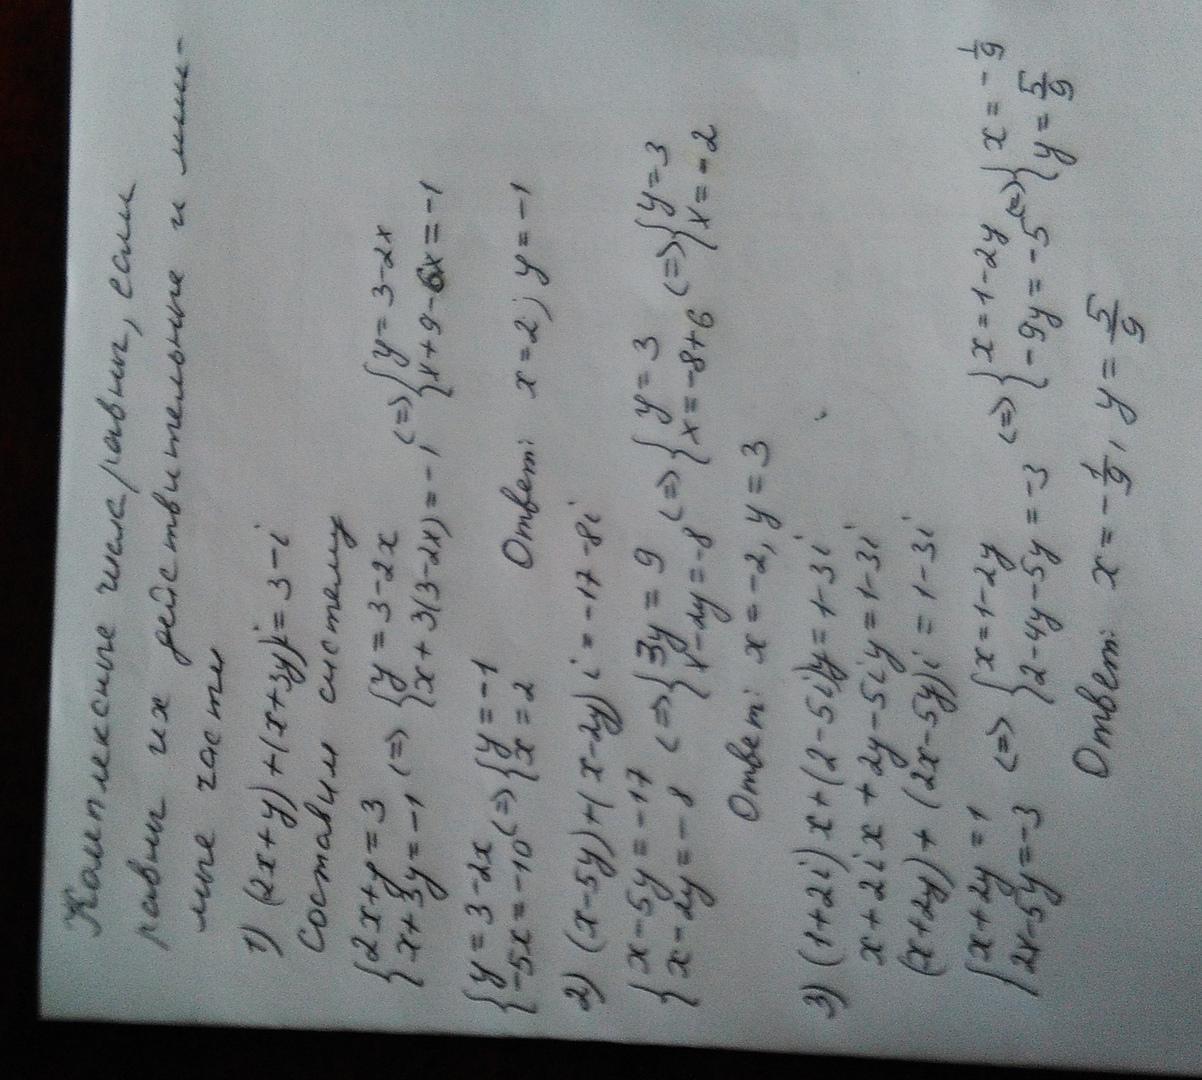 Комплексные числа равны, если
равны их действительные и мни-
мые части
1) (2x+y)+(x+3y)i=3-i
Составим систему
{2x+y=3 {y=3-2x {y=3-2x
{x+3y=-1 <=> {x+3(3-2x)=-1 <=> {x+9-6x=-1
{y=3-2x {y=-1
{-5x=-10 <=> {x=2 Ответ: x=2; y=-1
2) (x-5y)+(x-2y)i=-17-8i
{x-5y=-17 {3y=9 {y=3 {y=3
{x-2y=-8 <=> {x-2y=-8 <=> {x=-8+6 <=> {x=-2
Ответ: x=-2, y=3
3) (1+2i)x+(2-5i)y=1-3i
x+2ix+2y-5iy=1-3i
(x+2y)+(2x-5y)i=1-3i
{x+2y=1 {x=1-2y {x=1-2y {x=-1/9
{2x-5y=-3 <=> {2-4y-5y=-3 <=> {-9y=-5 <=> {y=5/9
Ответ: x=-1/9, y=5/9